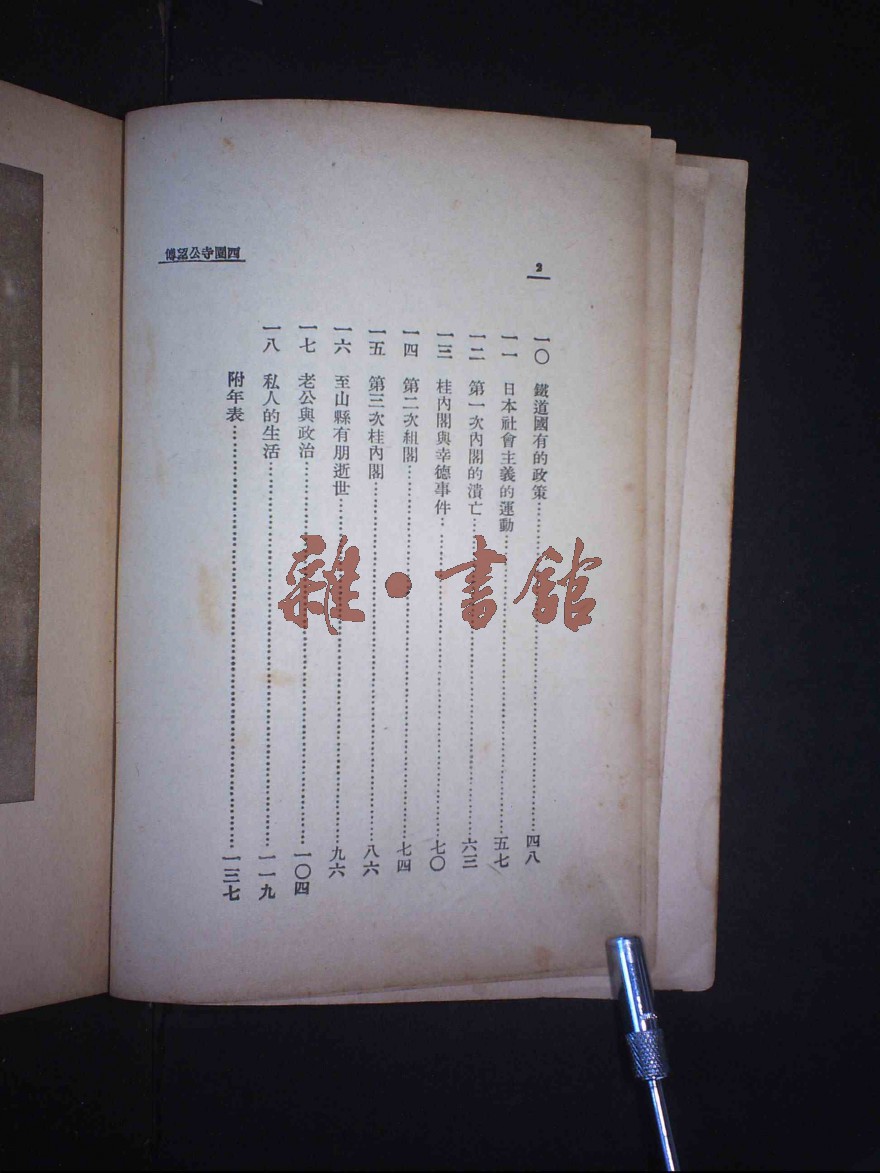 2
西園寺公望傳
一〇 鐵道國有的政策……四八
一一 日本社會主義的運動……五七
一二 第一次內閣的潰亡……六三
一三 桂內閣與幸德事件……七〇
一四 第二次組閣……七四
一五 第三次桂內閣……八六
一六 至山縣有朋逝世……九六
一七 老公與政治……一〇四
一八 私人的生活……一一九
附年表……一三七
雜·書館